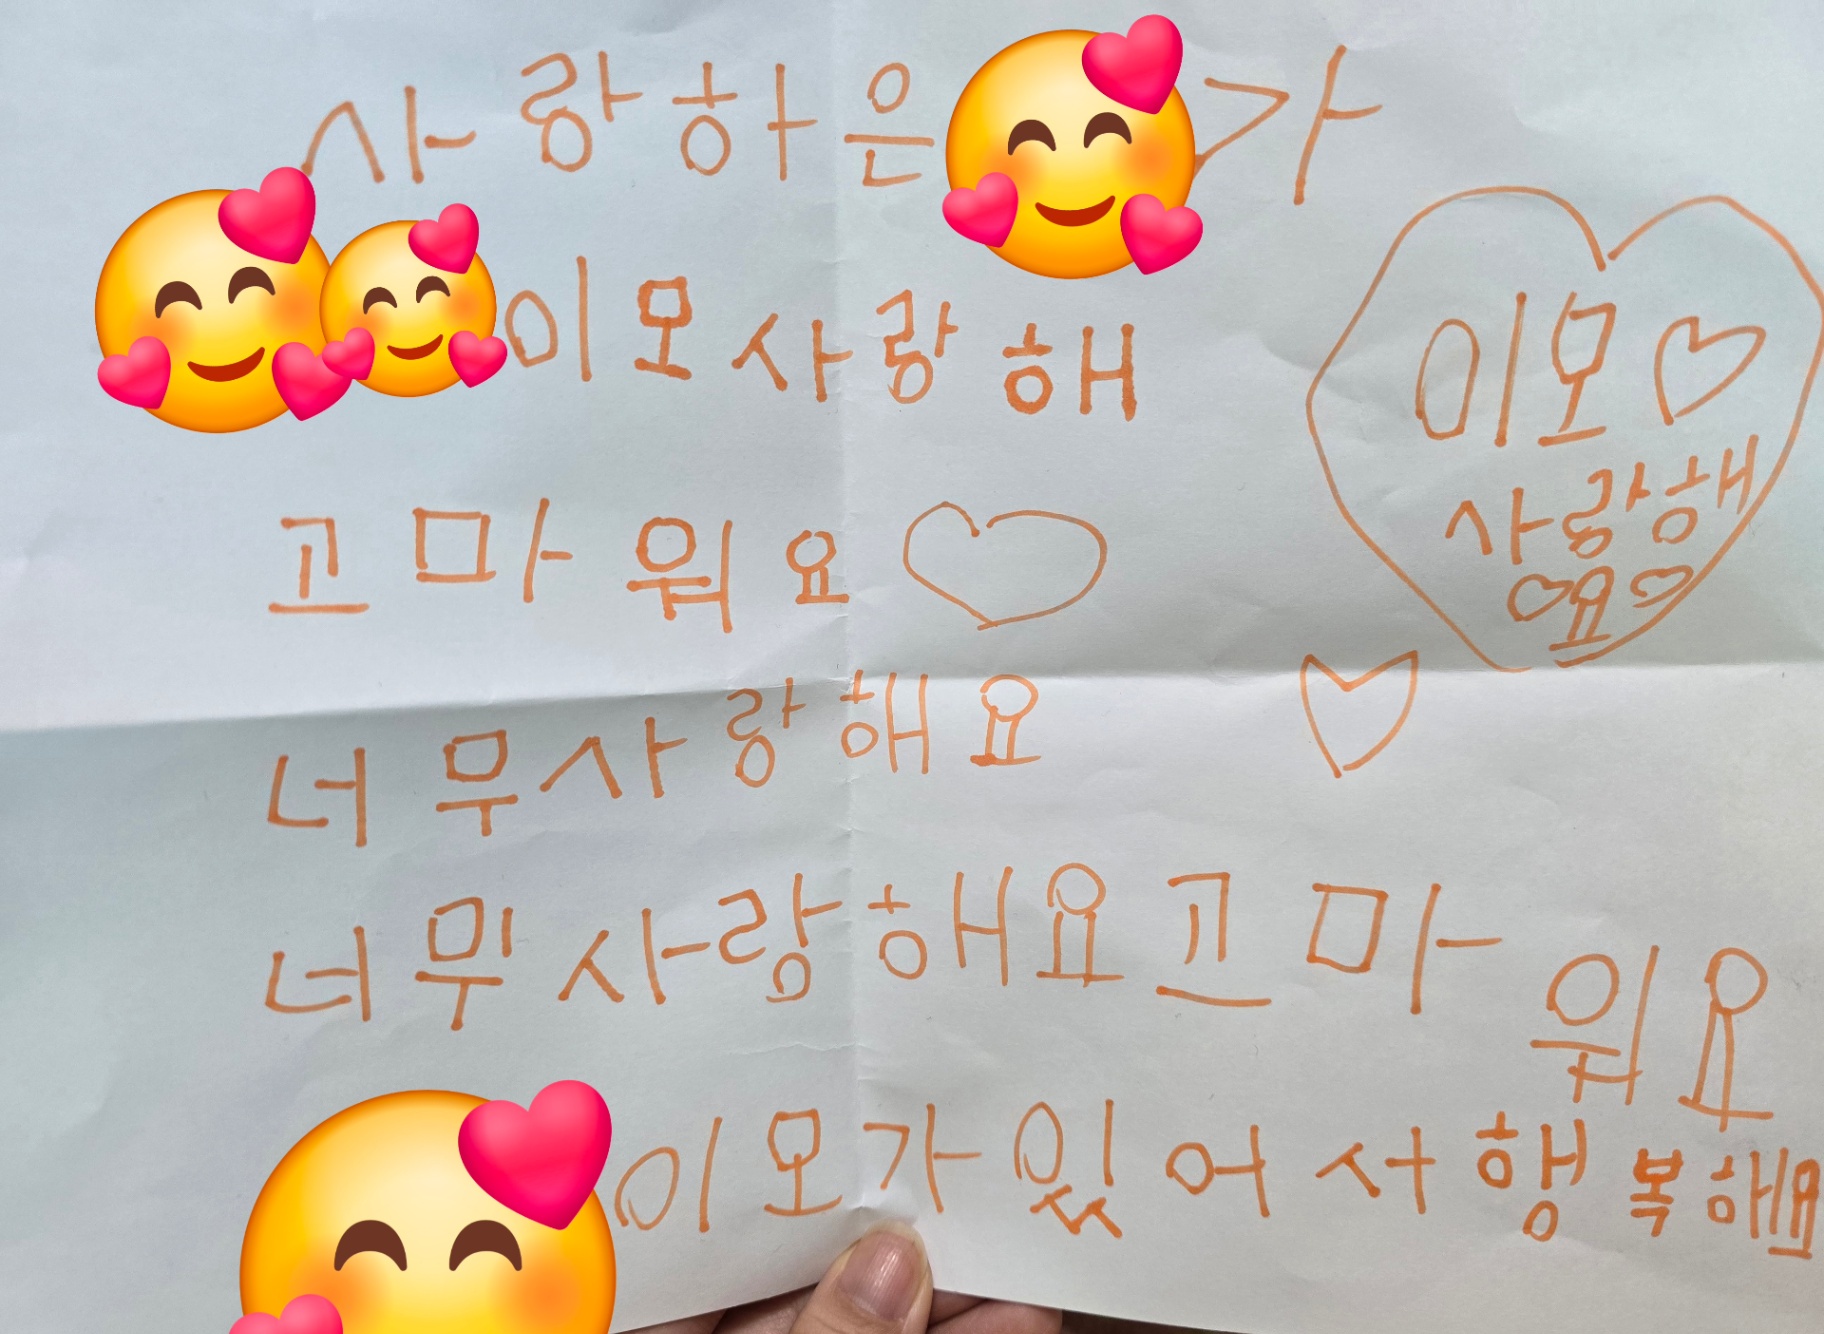 사랑하은 가
이모사랑해
이모♡
사랑해
♡요♡
고마워요♡
너무사랑해요 ♡
너무사랑해요고마워요
이모가있어서행복해요